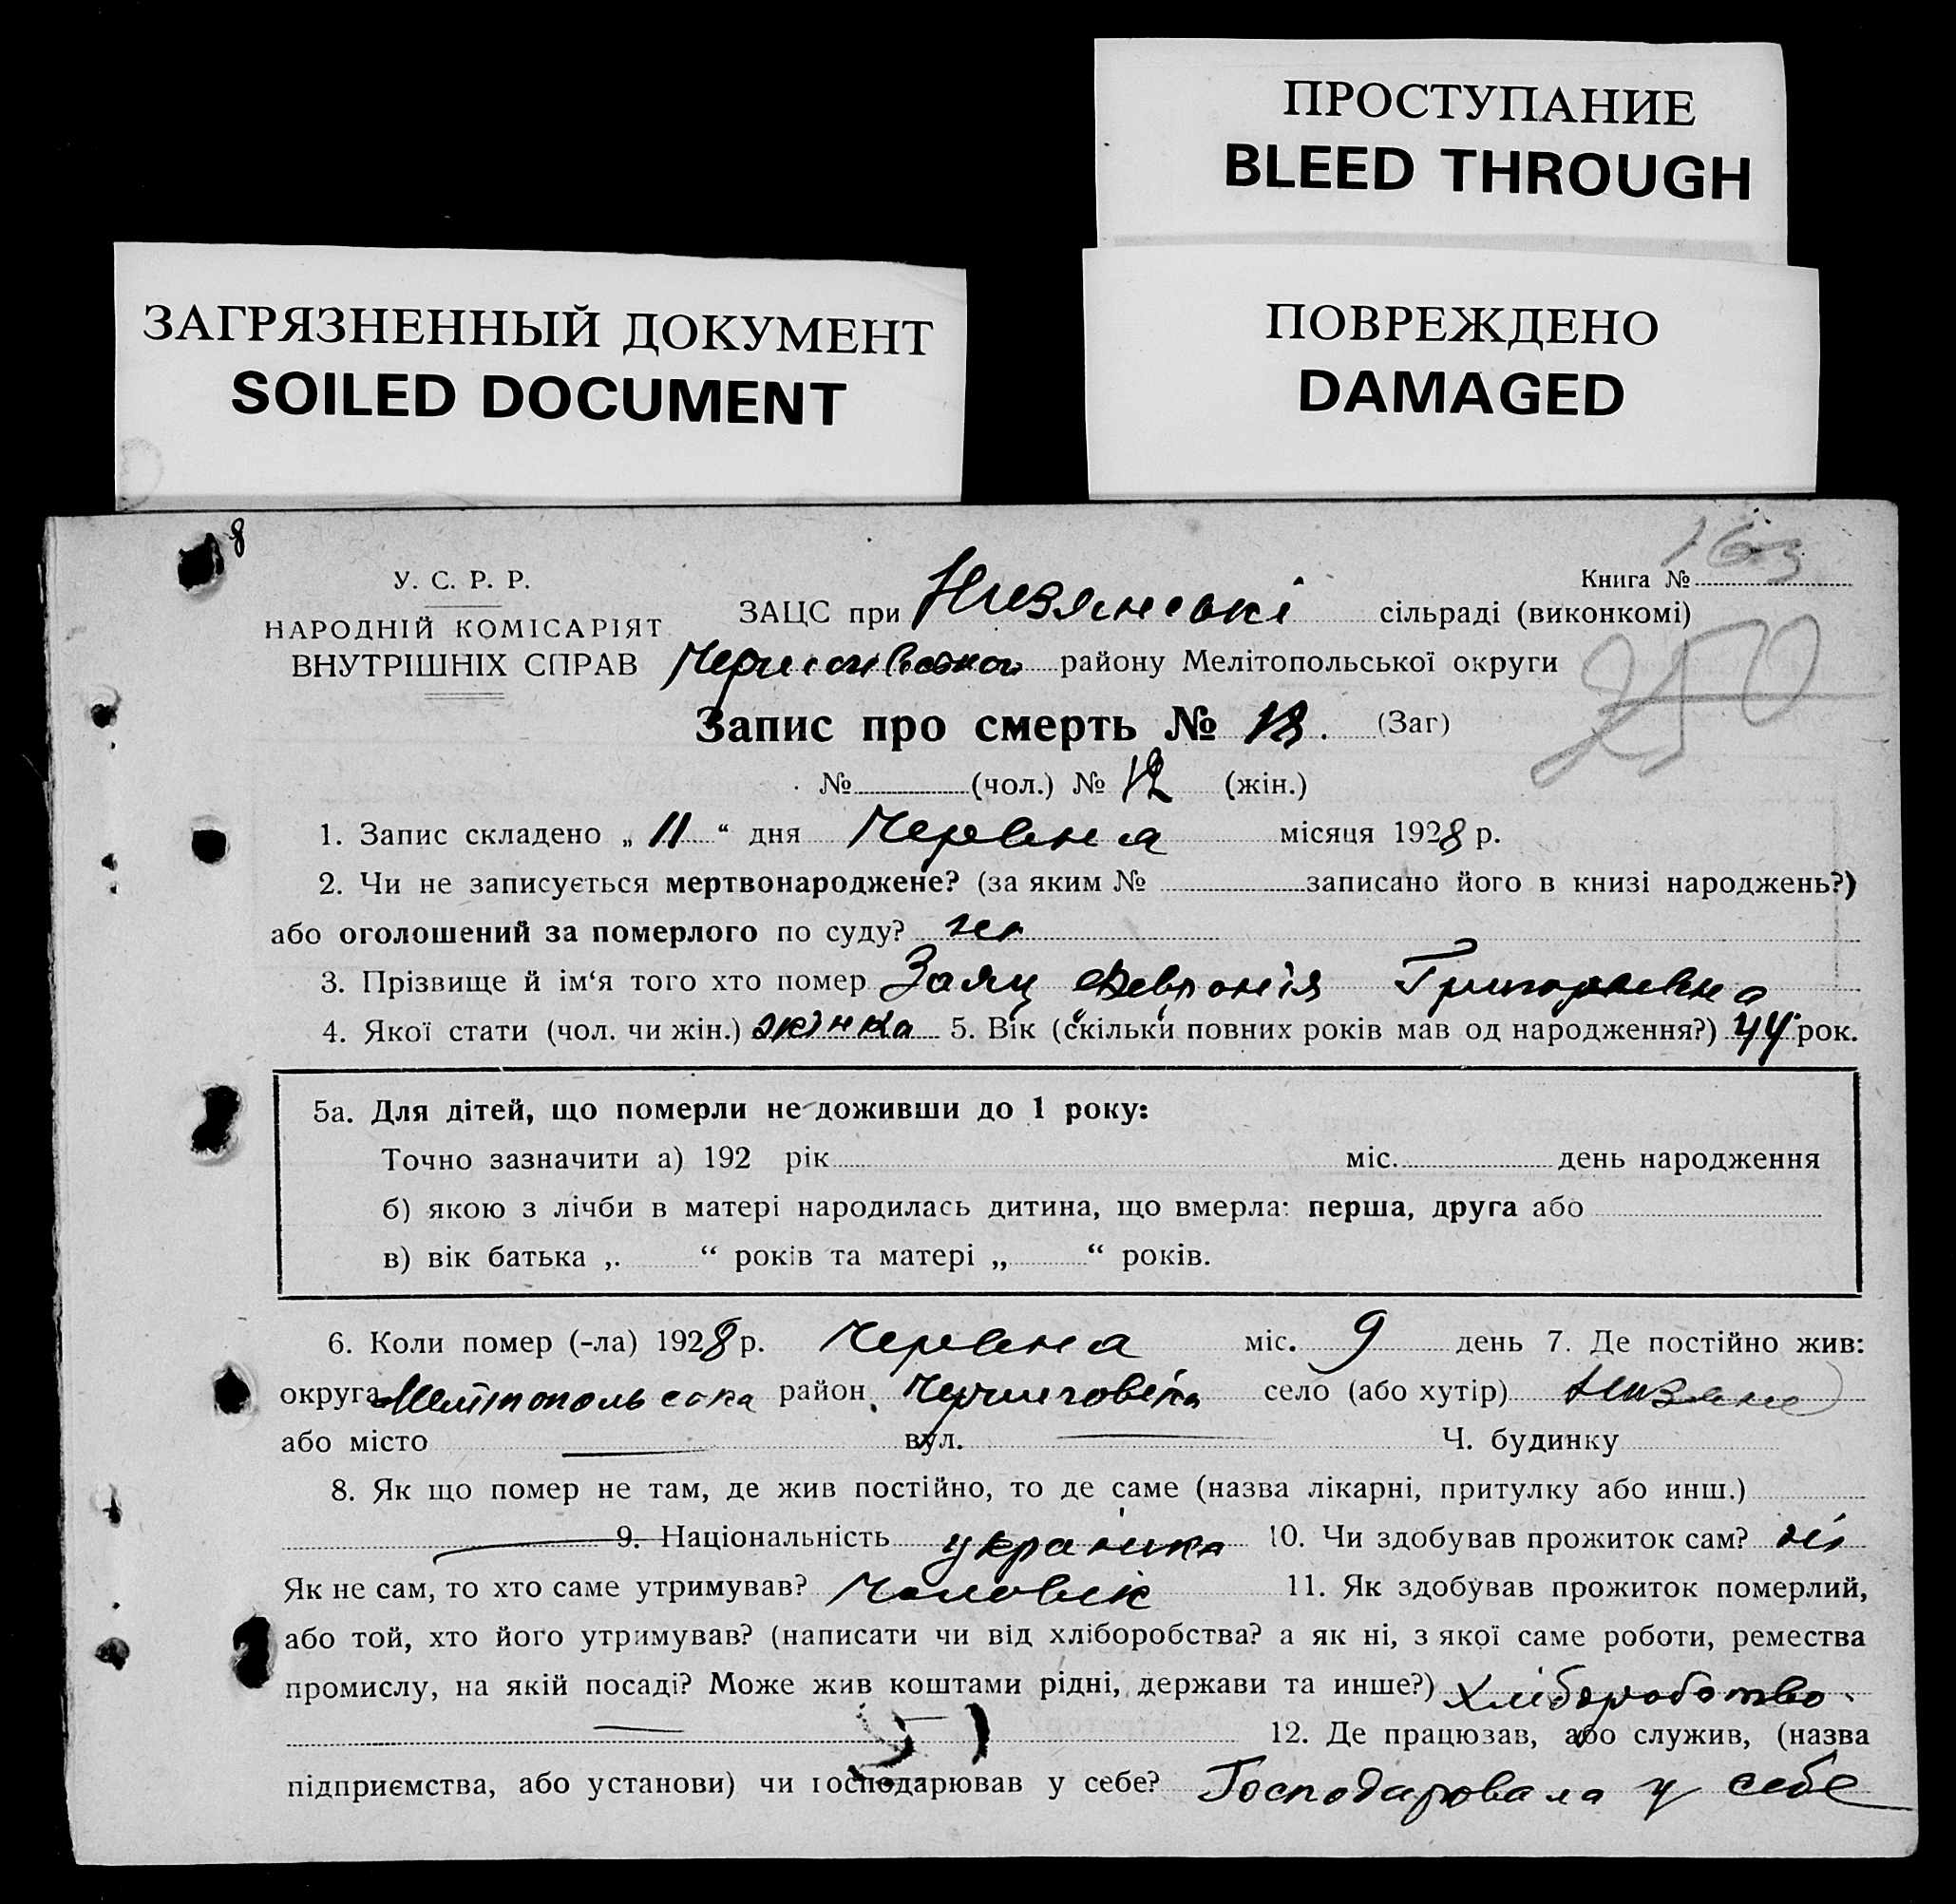 ПРОСТУПАНИЕ
BLEED THROUGH
ЗАГРЯЗНЕННЫЙ ДОКУМЕНТ
SOILED DOCUMENT
ПОВРЕЖДЕНО
DAMAGED
8
163
У. С. Р. Р.
Книга №
ЗАЦС при Низянські сільраді (виконкомі)
НАРОДНІЙ КОМІСАРІЯТ
ВНУТРІШНІХ СПРАВ
району Мелітопольської округи
250
Запис про смерть № 13. (Заг)
№ (чол.) № 12 (жін.)
1. Запис складено „ 11 “ дня Червня місяця 1928 р.
2. Чи не записується мертвонароджене? (за яким № записано його в книзі народжень?)
або оголошений за померлого по суду? ні
3. Прізвище й ім‘я того хто помер Заяц Февронія Григорьевна
4. Якої стати (чол. чи жін.) жінка 5. Вік (скільки повних років мав од народження?) 44 рок.
5а. Для дітей, що померли не доживши до 1 року:
Точно зазначити а) 192 рік міс. день народження
б) якою з лічби в матері народилась дитина, що вмерла: перша, друга або
в) вік батька „ “ років та матері „ “ років.
6. Коли помер (-ла) 1928 р. Червня міс. 9 день 7. Де постійно жив:
округа Мелітопольська район Черниговський село (або хутір) Низяне
або місто вул. Ч. будинку
8. Як що помер не там, де жив постійно, то де саме (назва лікарні, притулку або инш.)
9. Національність украінка 10. Чи здобував прожиток сам? ні
Як не сам, то хто саме утримував? Чоловік 11. Як здобував прожиток померлий,
або той, хто його утримував? (написати чи від хліборобства? а як ні, з якої саме роботи, ремества
промислу, на якій посаді? Може жив коштами рідні, держави та инше?) Хліборобство.
51
12. Де працював, або служив, (назва
підприємства, або установи) чи господарював у себе? Господарювала у себе